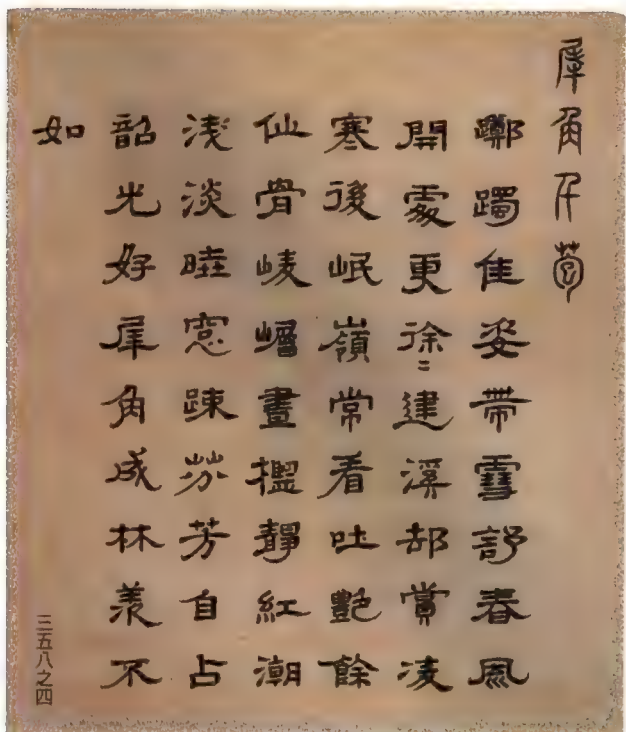 犀角千
躑躅佳姿帶雪舒春風
開處更徐〻建溪却賞凌
寒後岷嶺常看吐艷餘
仙骨崚嶒畫檻靜紅潮
淺淡曉窓踈芬芳自占
韶光好犀角成林羨不
如
三五八之四